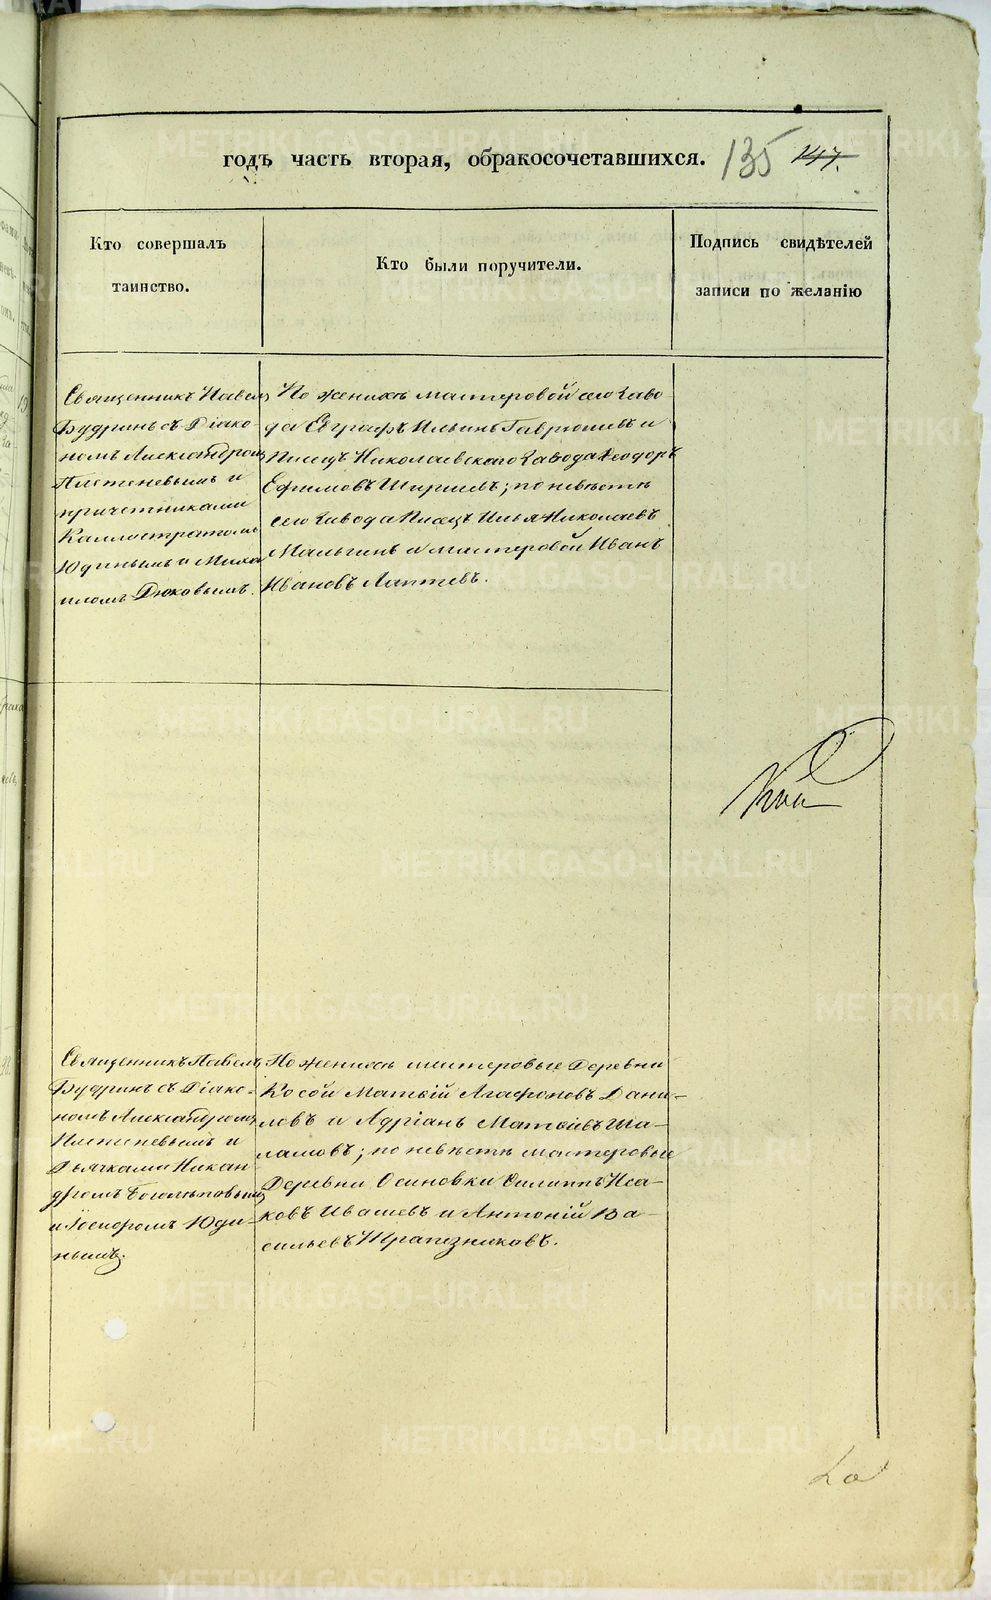 годъ часть вторая, обракосочетавшихся. 135 147.
Кто совершалъ
таинство.
Кто были поручители.
Подпись свидѣтелей
записи по желанію
Священникъ Павелъ
Будринъ съ Діако-
номъ Александромъ
Плетеневымъ и
причетниками
Каллостратомъ
Юдинымъ и Миха
иломъ Дюковымъ.
По женихѣ мастеровой сего Заво
да Евграфъ Ильинъ Гаврюшевъ и
Писецъ Николаевскаго Завода Ѳеодоръ
Ефимовъ Ширшевъ; по невѣстѣ
сего Завода Писецъ Илья Николаевъ
Мальгинъ и мастеровой Иванъ
Ивановъ Лаптевъ.
Священникъ Павелъ
Будринъ съ Діако-
номъ Александромъ
Плетеневымъ и
Дьячками Никан
дромъ Боголѣповымъ
и Ѳеодоромъ Юди-
нымъ.
По женихѣ мастеровые Деревни
Косой Матвій Агафоновъ Дани-
ловъ и Адріанъ Матвіевъ Ша-
ламовъ; по невѣстѣ мастеровые
Деревни Осиновки Филиппъ Иса-
ковъ Ивашевъ и Антоній Ва-
сильевъ Трапезниковъ.
METRIKI.GASO-URAL.RU